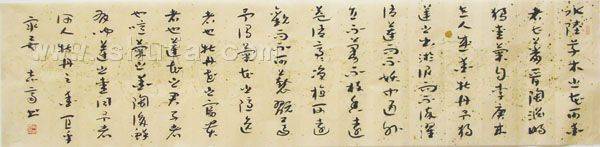 水陸草木之花可愛
者甚蕃晉陶淵明
獨愛菊自李唐來
世人甚愛牡丹予獨
愛蓮之出淤泥而不染濯
清漣而不妖中通外
直不蔓不枝香遠
益清亭亭淨植可遠
觀而不可褻玩焉
予謂菊花之隱逸
者也牡丹花之富貴
者也蓮花之君子者
也噫菊之愛陶後鮮
有聞蓮之愛同予者
何人牡丹之愛宜乎
衆矣 志高書